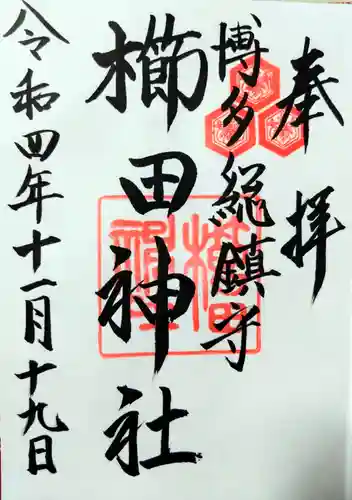 奉拝
博多総鎮守
櫛田神社
令和四年十一月十九日